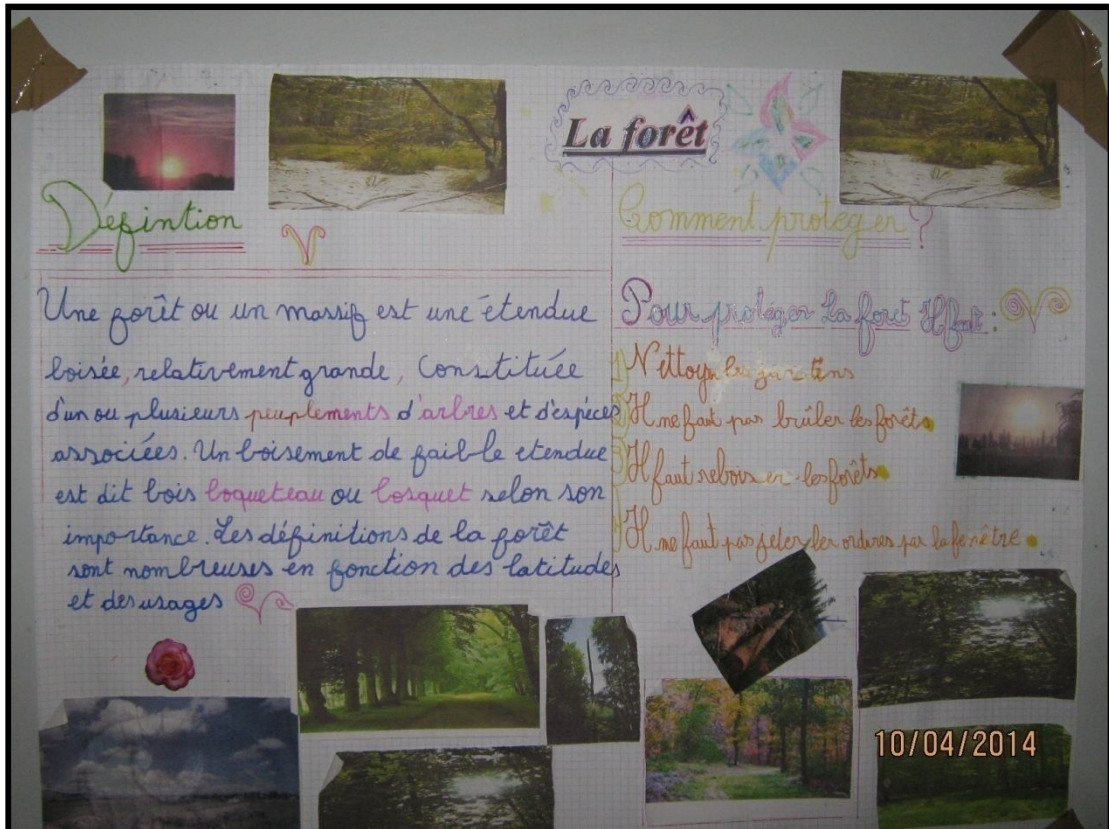 La forêt
Défintion
Une forêt ou un massif est une étendue
boisée, relativement grande, Constituée
d'un ou plusieurs peuplements d'arbres et d'espèces
associées. Un boisement de faible etendue
est dit bois boqueteau ou bosquet selon son
importance. Les définitions de la forêt
sont nombreuses en fonction des latitudes
et des usages
Comment protéger ?
Pour protéger la forêt Il faut :
1) les jardins
2) Il ne faut pas brûler les forêts
3) Il faut reboiser les forêts
4) Il ne faut pas jeter les ordures par la fenêtre
10/04/2014